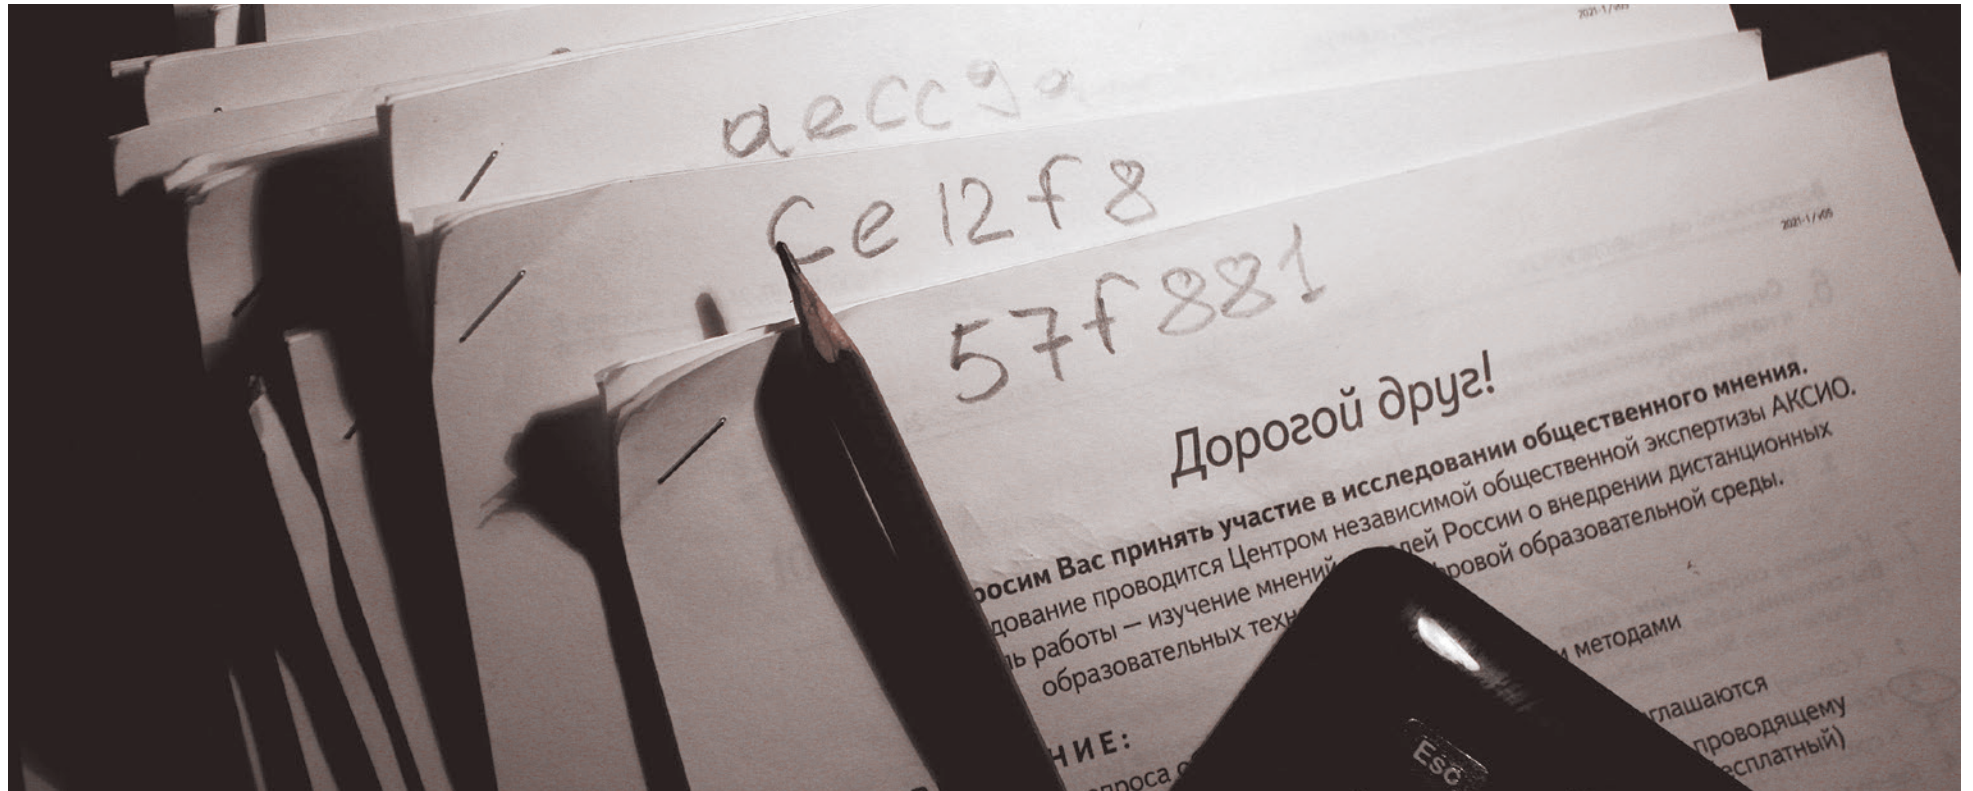 2021-1/v05
aecc9a
ce12f8
57f881
2021-1/v05
Дорогой друг!
росим Вас принять участие в исследовании общественного мнения.
дование проводится Центром независимой общественной экспертизы АКСИО.
ль работы — изучение мнений телей России о внедрении дистанционных
образовательных техн ровой образовательной среды.
и методами
НИЕ:
глашаются
опроса о проводящему
есплатный)
Esc